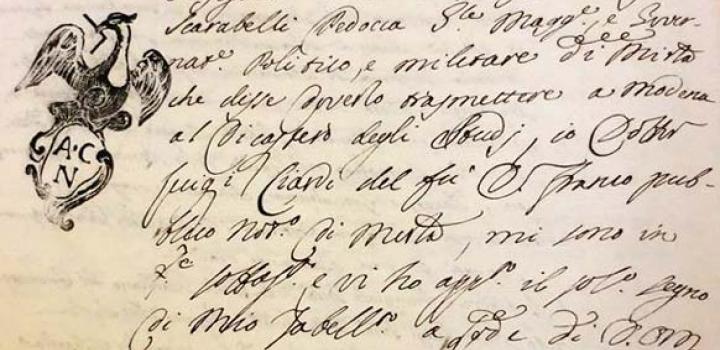 Scarabelli Pedocca S.le Magg.e, e Gover-
nat.e Politico, e militare di Mir.la
che disse doverlo trasmettere a Modena
al Dicastero degli Studj, io Dottr
Luigi Ciardi del fù D. Franco pub-
blico Not.o di Mir.la, mi sono in
sottos.to, e vi ho app.to il sol.o segno
di mio Tabell.to a Lode di D.
A·C
N